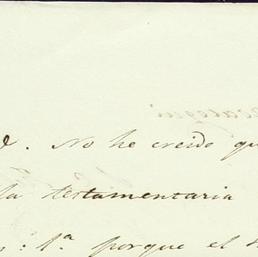 d. No he creido qu
la testamentaria
: 1.ª porque el